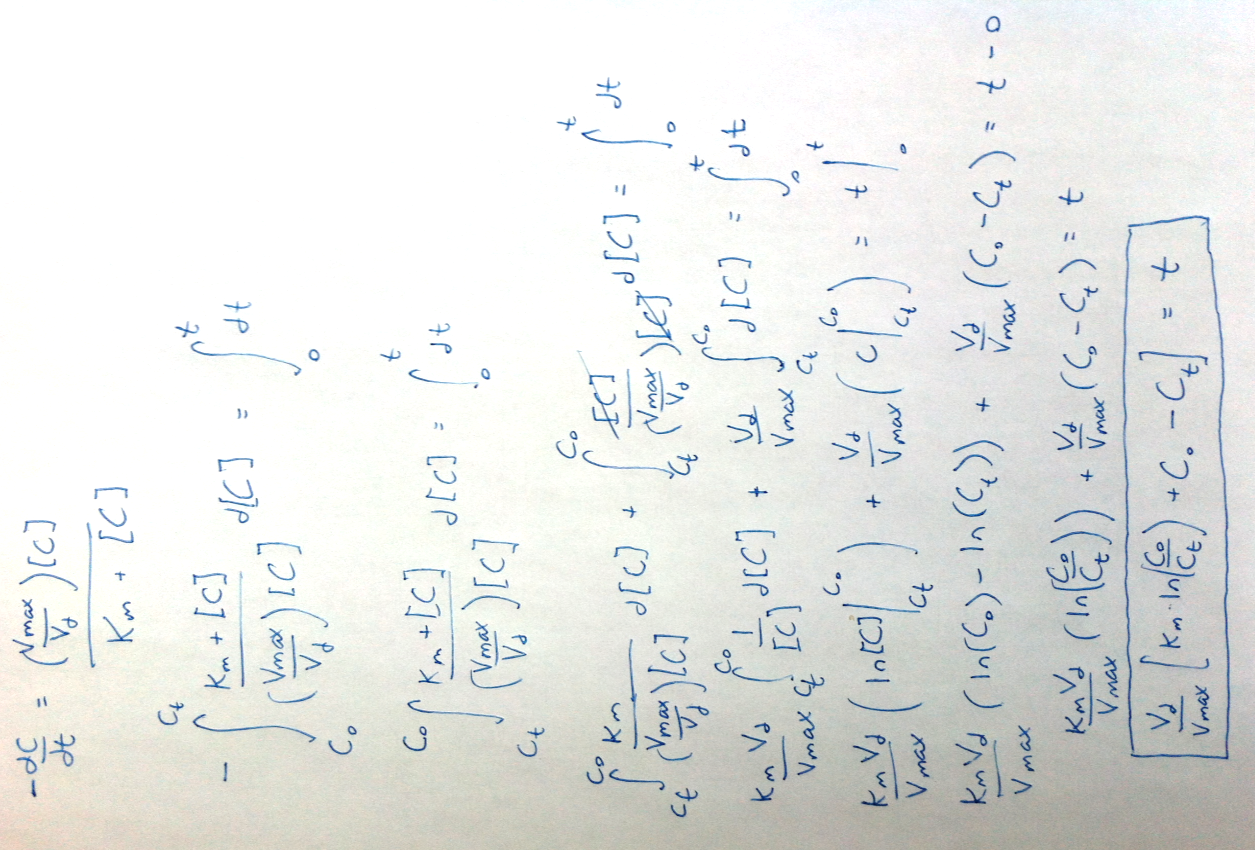 -dC/dt = (Vmax/Vd)[C] / Km + [C]
- ∫_{C₀}^{Cₜ} Km + [C] / (Vmax/Vd)[C] d[C] = ∫_0^t dt
∫_{Cₜ}^{C₀} Km + [C] / (Vmax/Vd)[C] d[C] = ∫_0^t dt
∫_{Cₜ}^{C₀} Km / (Vmax/Vd)[C] d[C] + ∫_{Cₜ}^{C₀} [C] / (Vmax/Vd)[C] d[C] = ∫_0^t dt
KmVd/Vmax ∫_{Cₜ}^{C₀} 1/[C] d[C] + Vd/Vmax ∫_{Cₜ}^{C₀} d[C] = ∫_0^t dt
KmVd/Vmax (ln[C] |_{Cₜ}^{C₀}) + Vd/Vmax (C |_{Cₜ}^{C₀}) = t |_0^t
KmVd/Vmax (ln(C₀) - ln(Cₜ)) + Vd/Vmax (C₀ - Cₜ) = t - 0
KmVd/Vmax (ln(C₀/Cₜ)) + Vd/Vmax (C₀ - Cₜ) = t
Vd/Vmax [Km·ln(C₀/Cₜ) + C₀ - Cₜ] = t